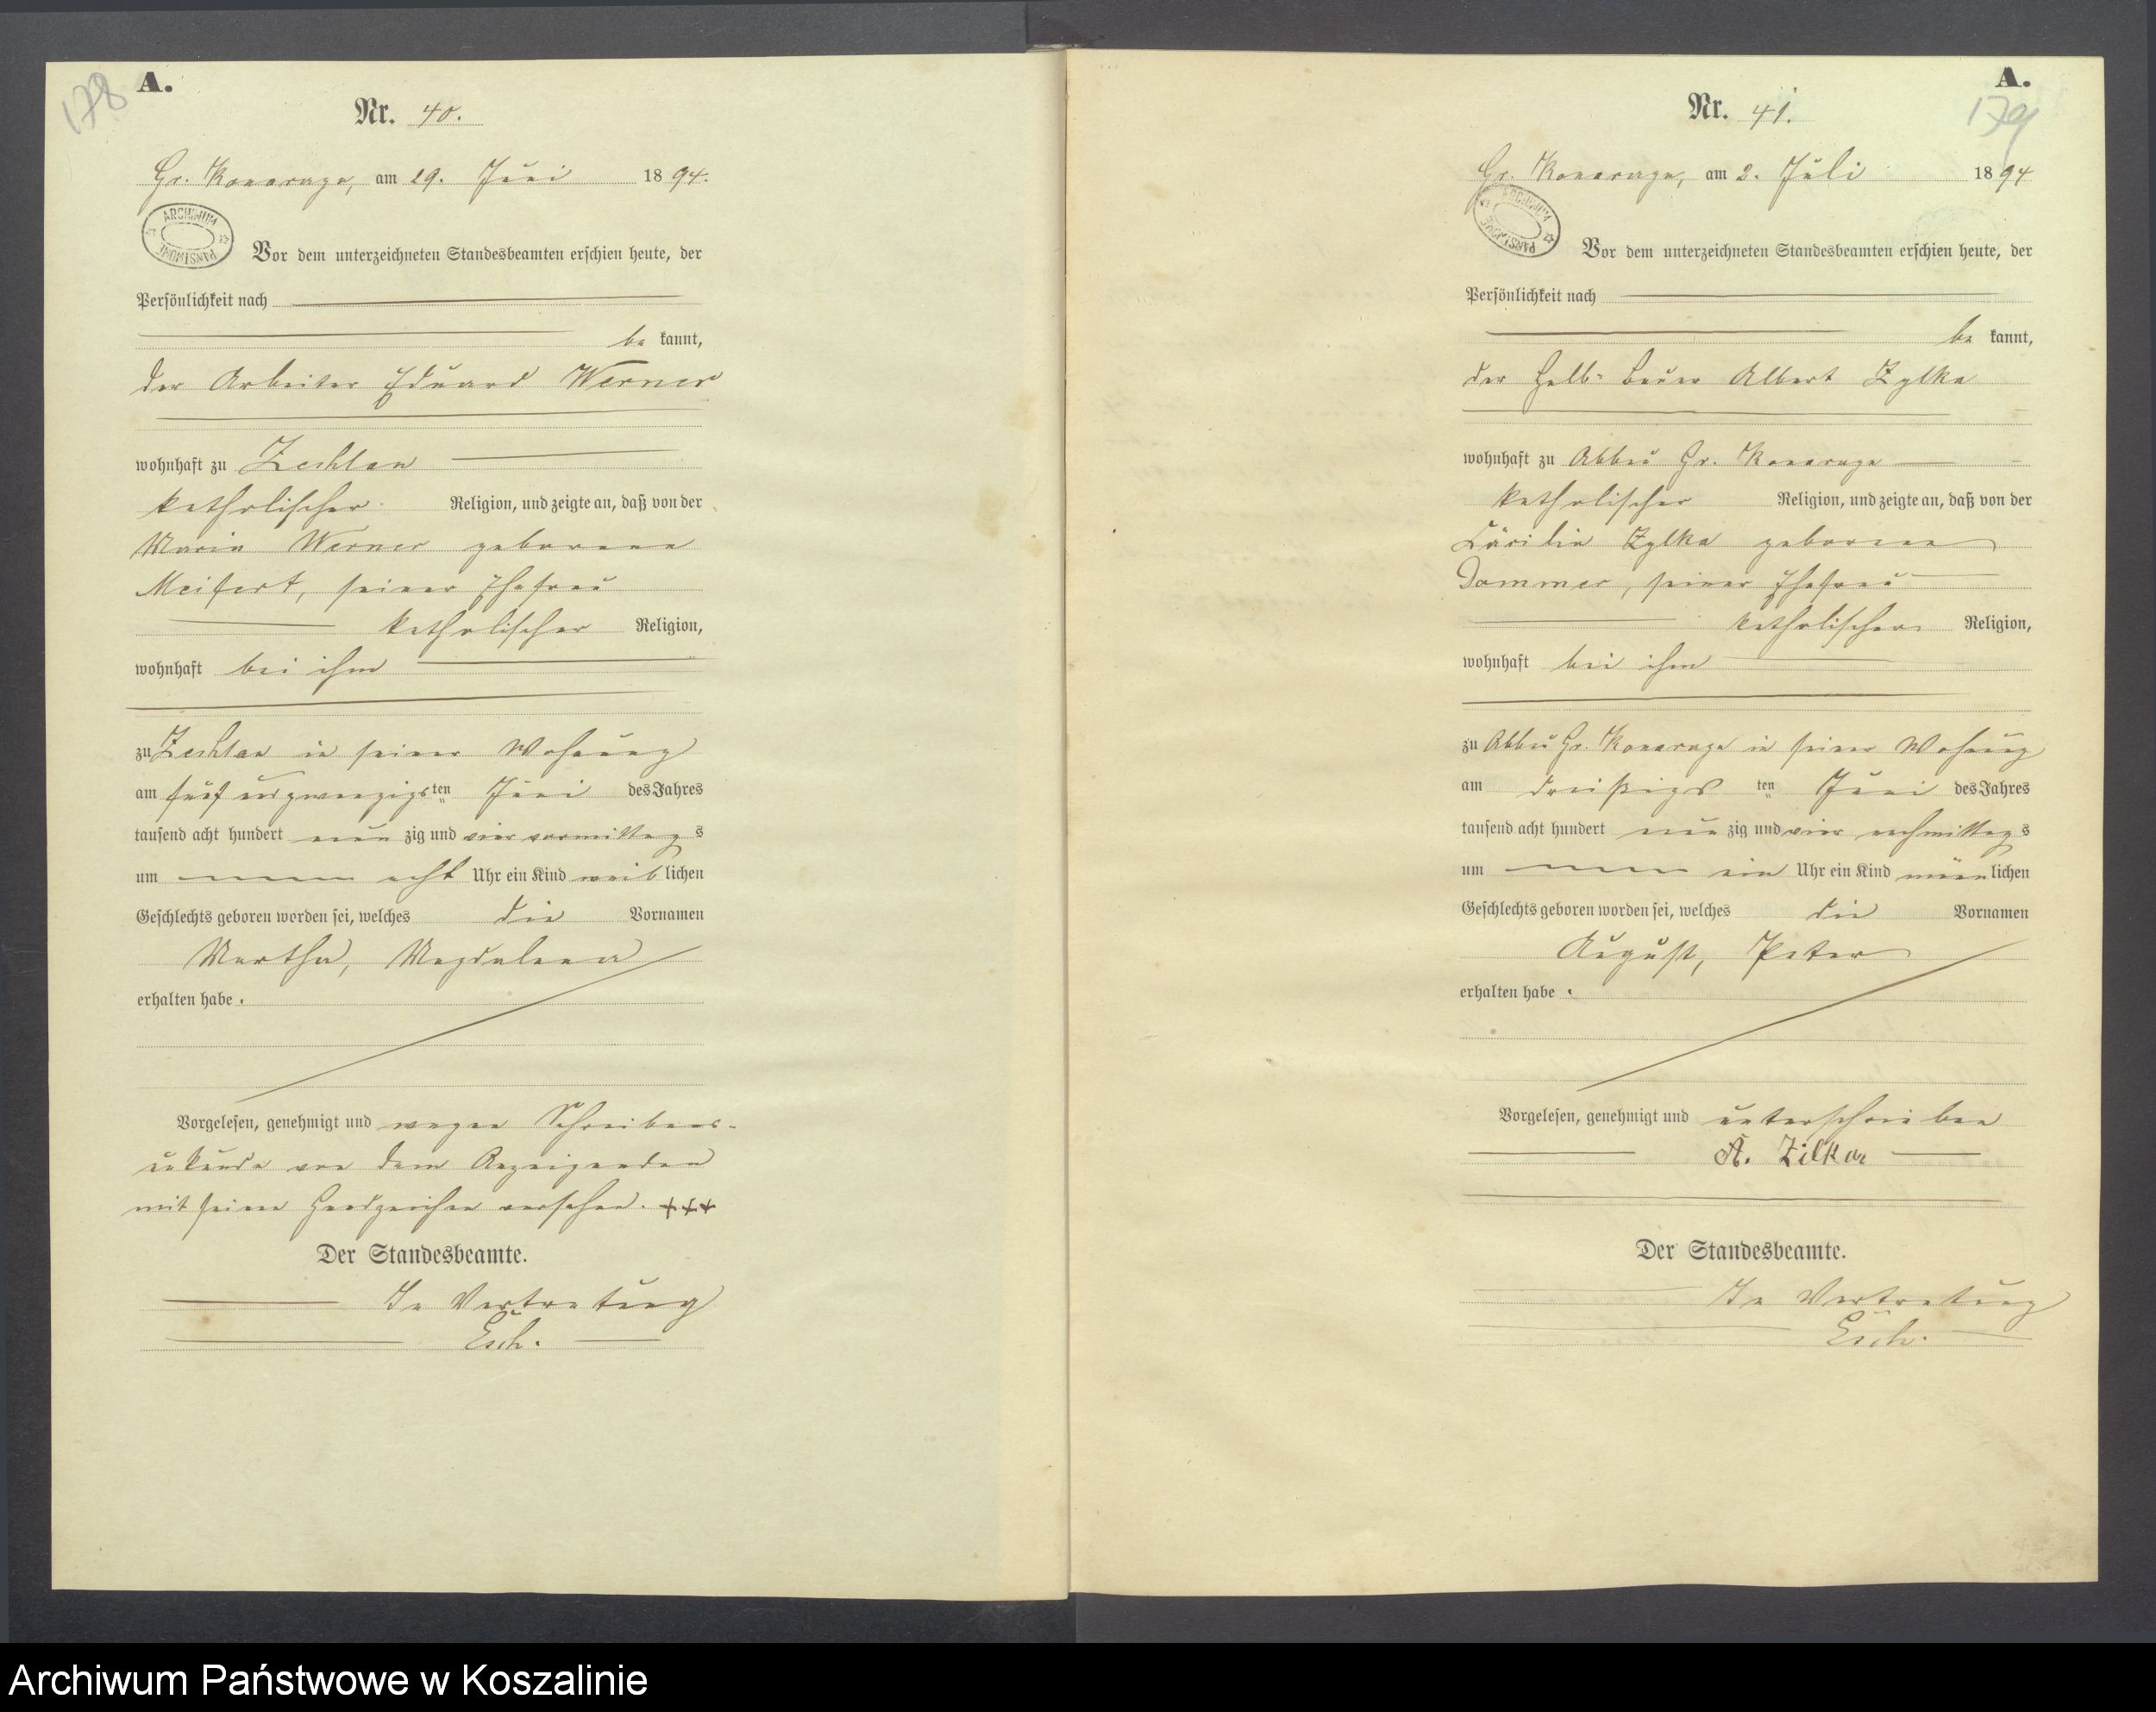 178
A.
Nr. 40.
Gr. Konarage, am 29. Juni 1894.
ARCHIWUM PAŃSTWOWE
Vor dem unterzeichneten Standesbeamten erschien heute, der
Persönlichkeit nach
be kannt,
der Arbeiter Eduard Werner
wohnhaft zu Zechlau
katholischer Religion, und zeigte an, daß von der
Maria Werner geborene
Meifert, seiner Ehefrau
katholischer Religion,
wohnhaft bei ihm
zu Zechlau in seiner Wohnung
am fünf und zwanzigs ten Juni des Jahres
tausend acht hundert neun zig und vier vormittag s
um acht Uhr ein Kind weib lichen
Geschlechts geboren worden sei, welches die Vornamen
Martha, Magdalena
erhalten habe.
Vorgelesen, genehmigt und wegen Schreibens-
unkunde von dem Anzeigenden
mit seinen Handzeichen versehen. +++
Der Standesbeamte.
In Vertretung
Esch.
A.
179
Nr. 41.
Gr. Konarage, am 2. Juli 1894
ARCHIWUM PAŃSTWOWE
Vor dem unterzeichneten Standesbeamten erschien heute, der
Persönlichkeit nach
be kannt,
der Halb-Bauer Albert Zylka
wohnhaft zu Abbau Gr. Konarage
katholischer Religion, und zeigte an, daß von der
Cäcilia Zylka geborene
Dammer, seiner Ehefrau
katholischer Religion,
wohnhaft bei ihm
zu Abbau Gr. Konarage in seiner Wohnung
am dreißigs ten Juni des Jahres
tausend acht hundert neun zig und vier nachmittag s
um ein Uhr ein Kind männ lichen
Geschlechts geboren worden sei, welches die Vornamen
August, Peter
erhalten habe.
Vorgelesen, genehmigt und unterschrieben
A. Zilka
Der Standesbeamte.
In Vertretung
Esch.
Archiwum Państwowe w Koszalinie